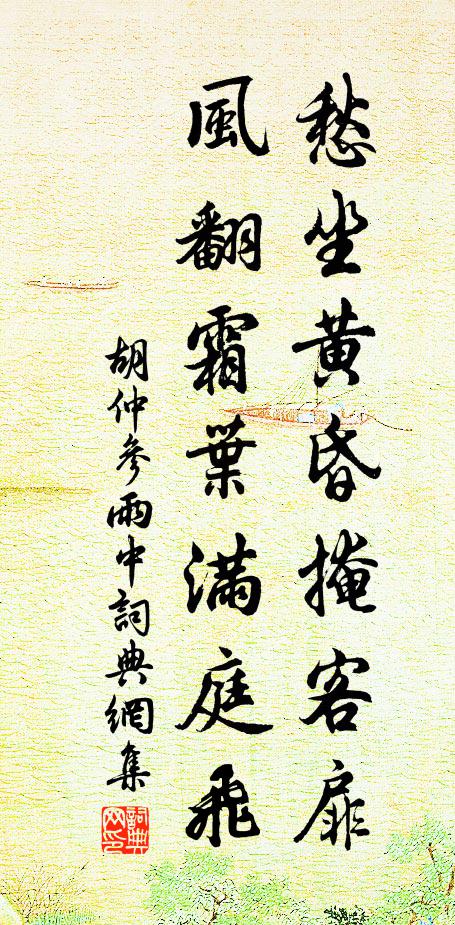 愁坐黃昏掩客扉
風翻霜葉滿庭飛
胡仲參雨中詞典網集
詞典網印